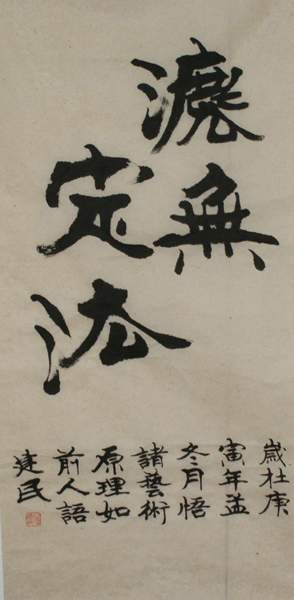 灋無
定法
歲在庚
寅年孟
冬月悟
諸藝術
原理如
前人語
建民